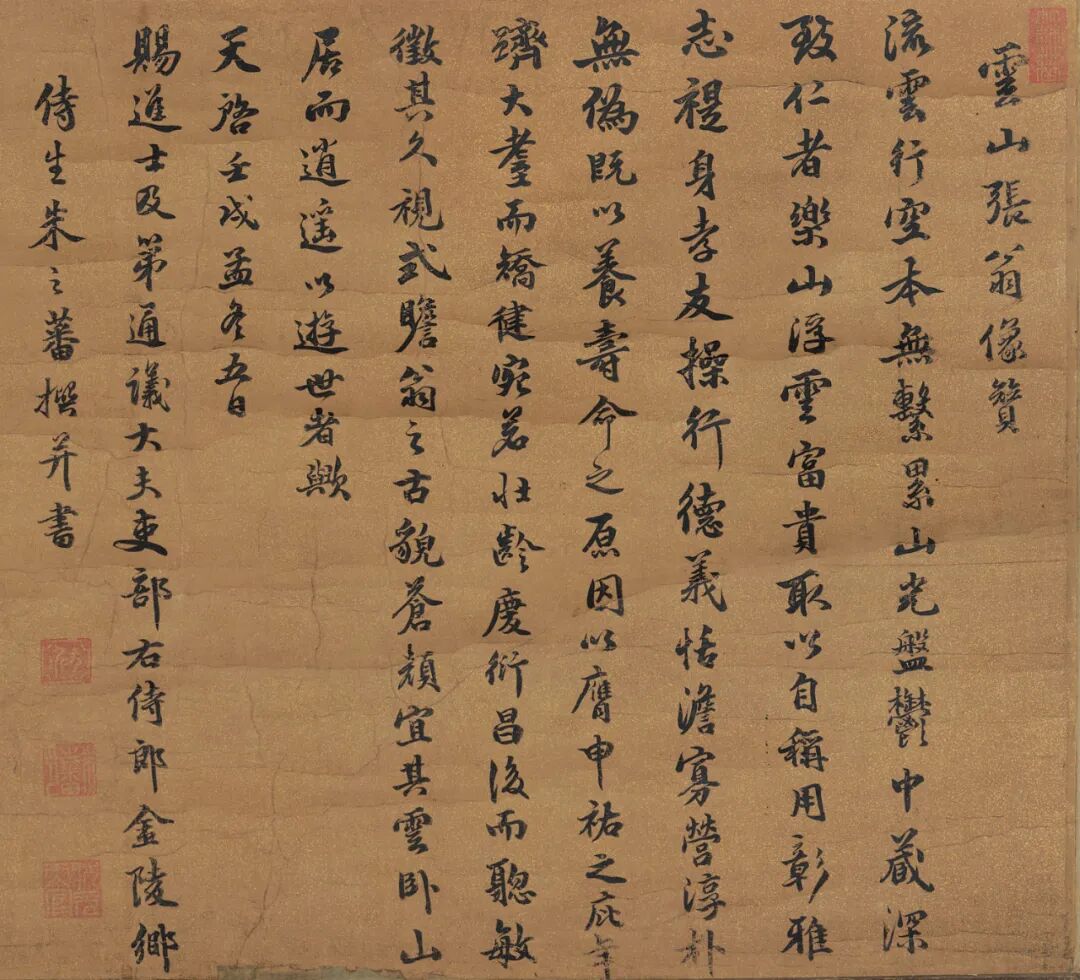 雲山張翁像贊
流雲行空本無繫累山光盤鬱中藏深
致仁者樂山浮雲富貴取以自稱用彰雅
志禔身孝友操行德義恬澹寡營淳朴
無偽既以養壽命之原因以膺申祐之庇年
躋大耋而矯健宛若壯齡慶衍昌後而聰敏
徵其久視式瞻翁之古貌蒼顏宜其雲臥山
居而逍遥以遊世者歟
天啓壬戌孟冬五日
賜進士及第通議大夫吏部右侍郎金陵鄉
侍生朱之蕃撰并書